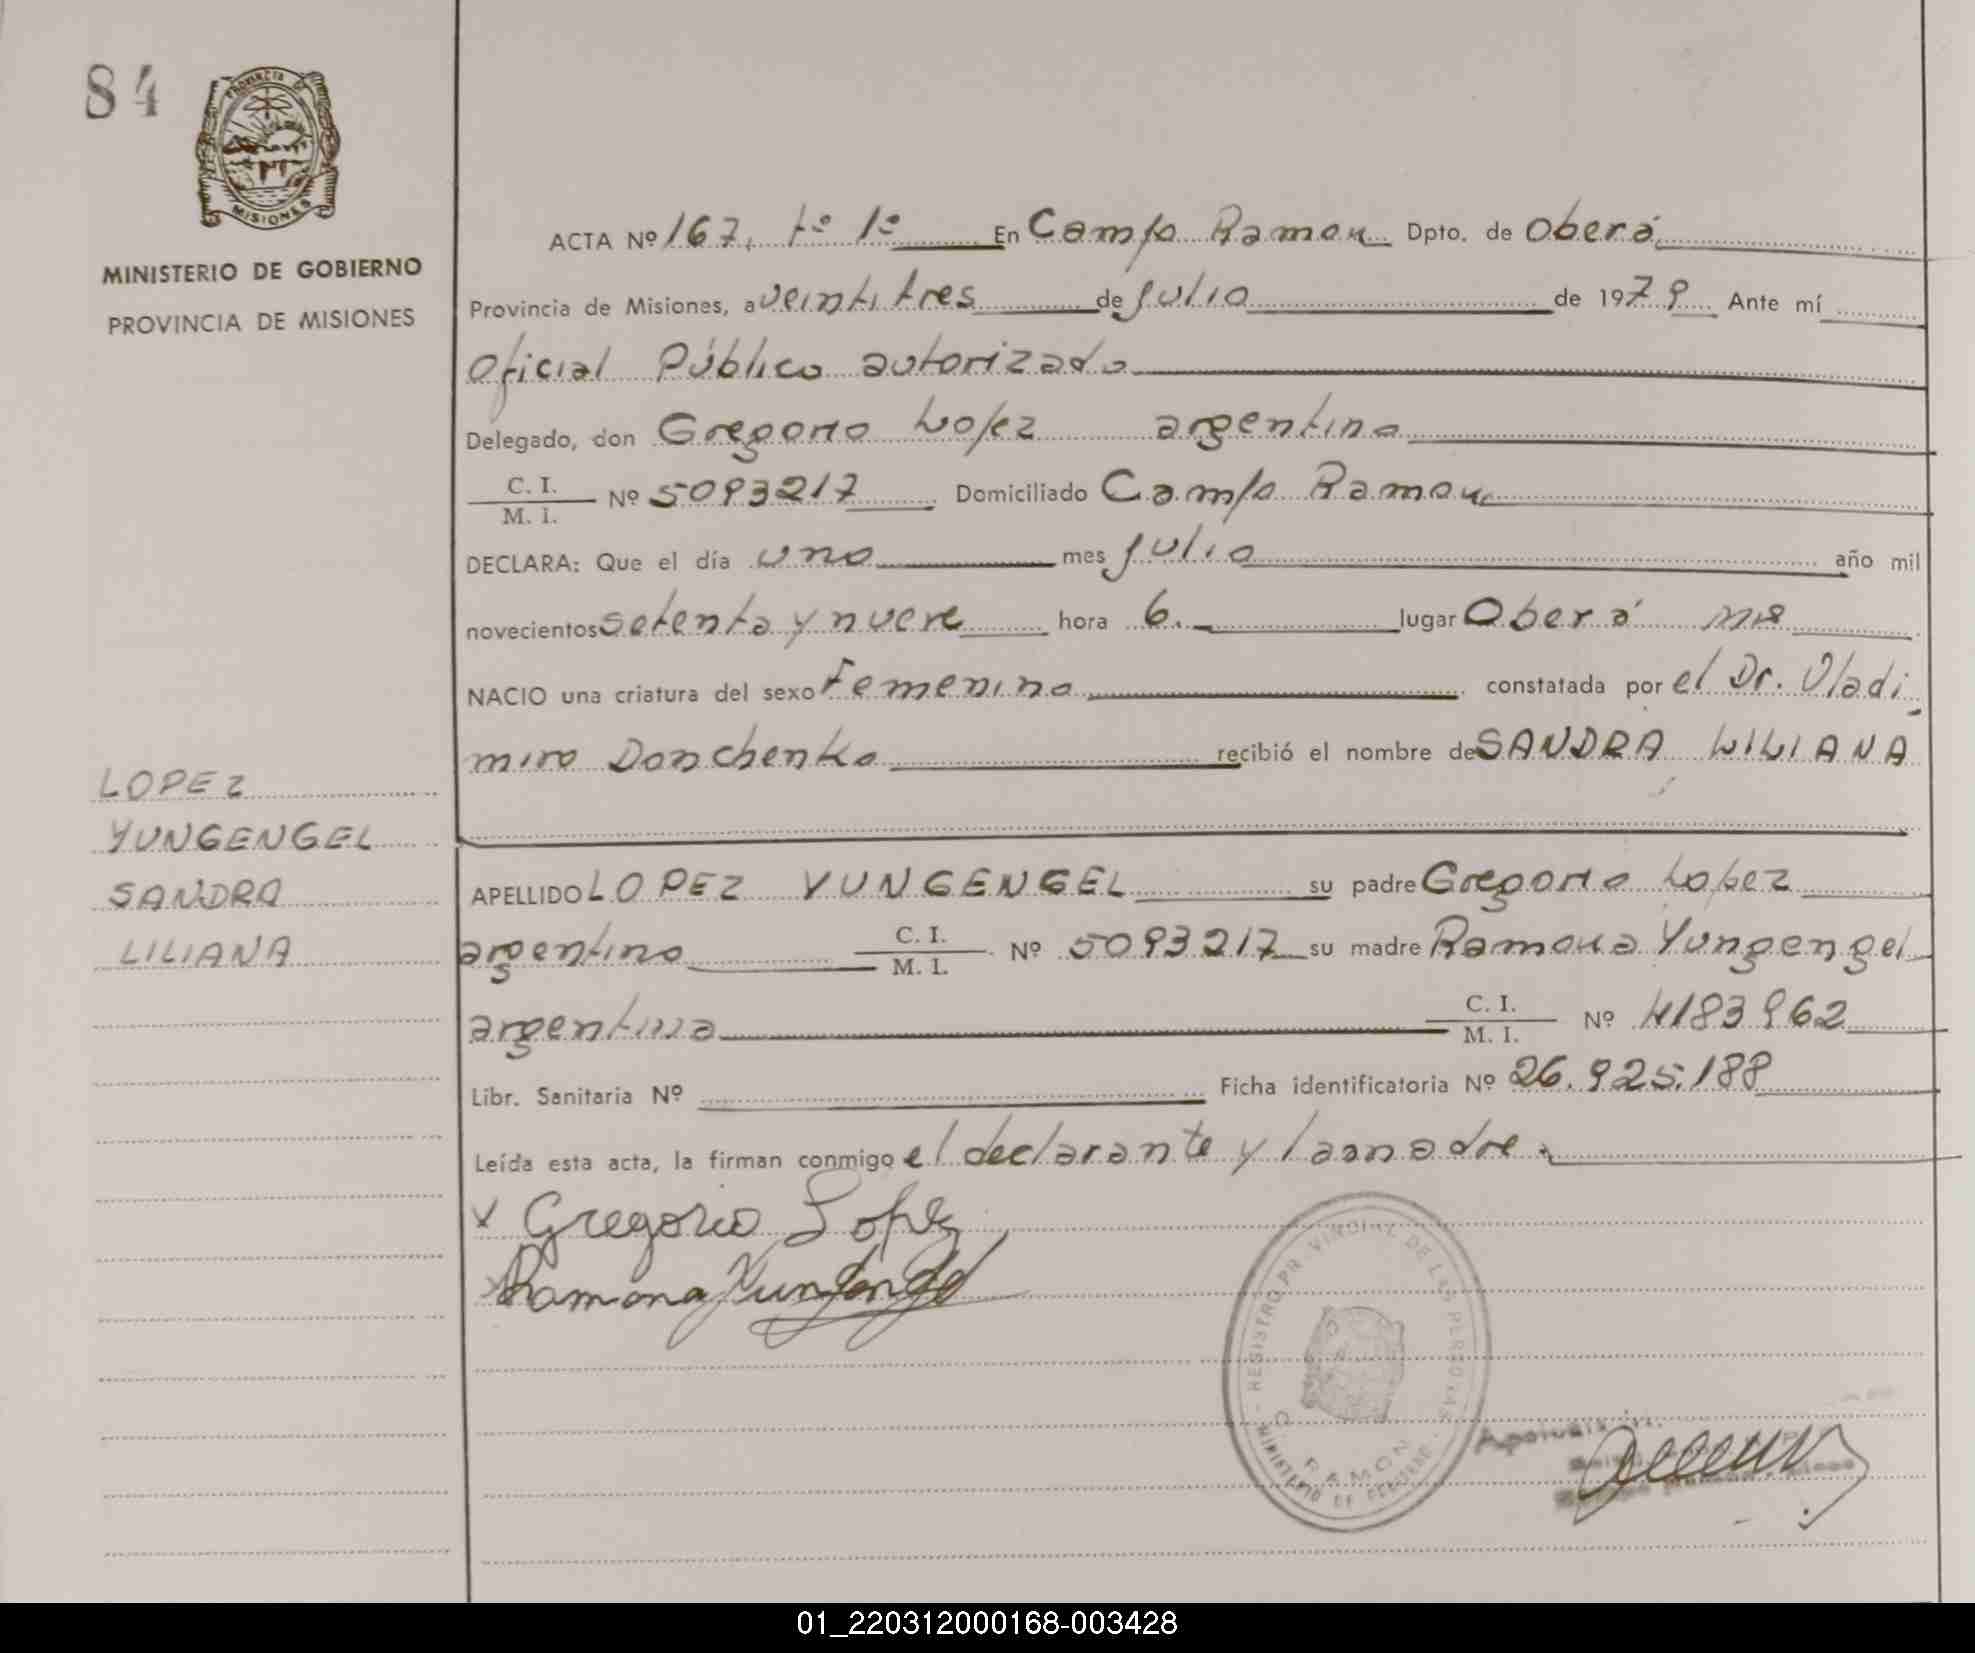 84
PROVINCIA DE
MISIONES
MINISTERIO DE GOBIERNO
PROVINCIA DE MISIONES
ACTA Nº 167, tº 1º En Campo Ramon Dpto. de Oberá
Provincia de Misiones, a veintitres de julio de 1979 Ante mí
Oficial Público autorizado
Delegado, don Gregorio Lopez argentino
C. I.
M. I. Nº 5093217 Domiciliado Campo Ramon
DECLARA: Que el día uno mes julio año mil
novecientos setenta y nueve hora 6. lugar Oberá Mns
NACIO una criatura del sexo Femenino constatada por el Dr. Vladi
miro Donchenko recibió el nombre de SANDRA LILIANA
LOPEZ
YUNGENGEL
SANDRA
LILIANA
APELLIDO LOPEZ YUNGENGEL su padre Gregorio Lopez
argentino C. I.
M. I. Nº 5093217 su madre Ramona Yungengel
argentina C. I.
M. I. Nº 4183962
Libr. Sanitaria Nº Ficha identificatoria Nº 26.925.188
Leída esta acta, la firman conmigo el declarante y la madre.
x Gregorio Lopez
x Ramona Yungengel
REGISTRO PROVINCIAL DE LAS PERSONAS
RAMON
MINISTERIO DE GOBIERNO
01_220312000168-003428